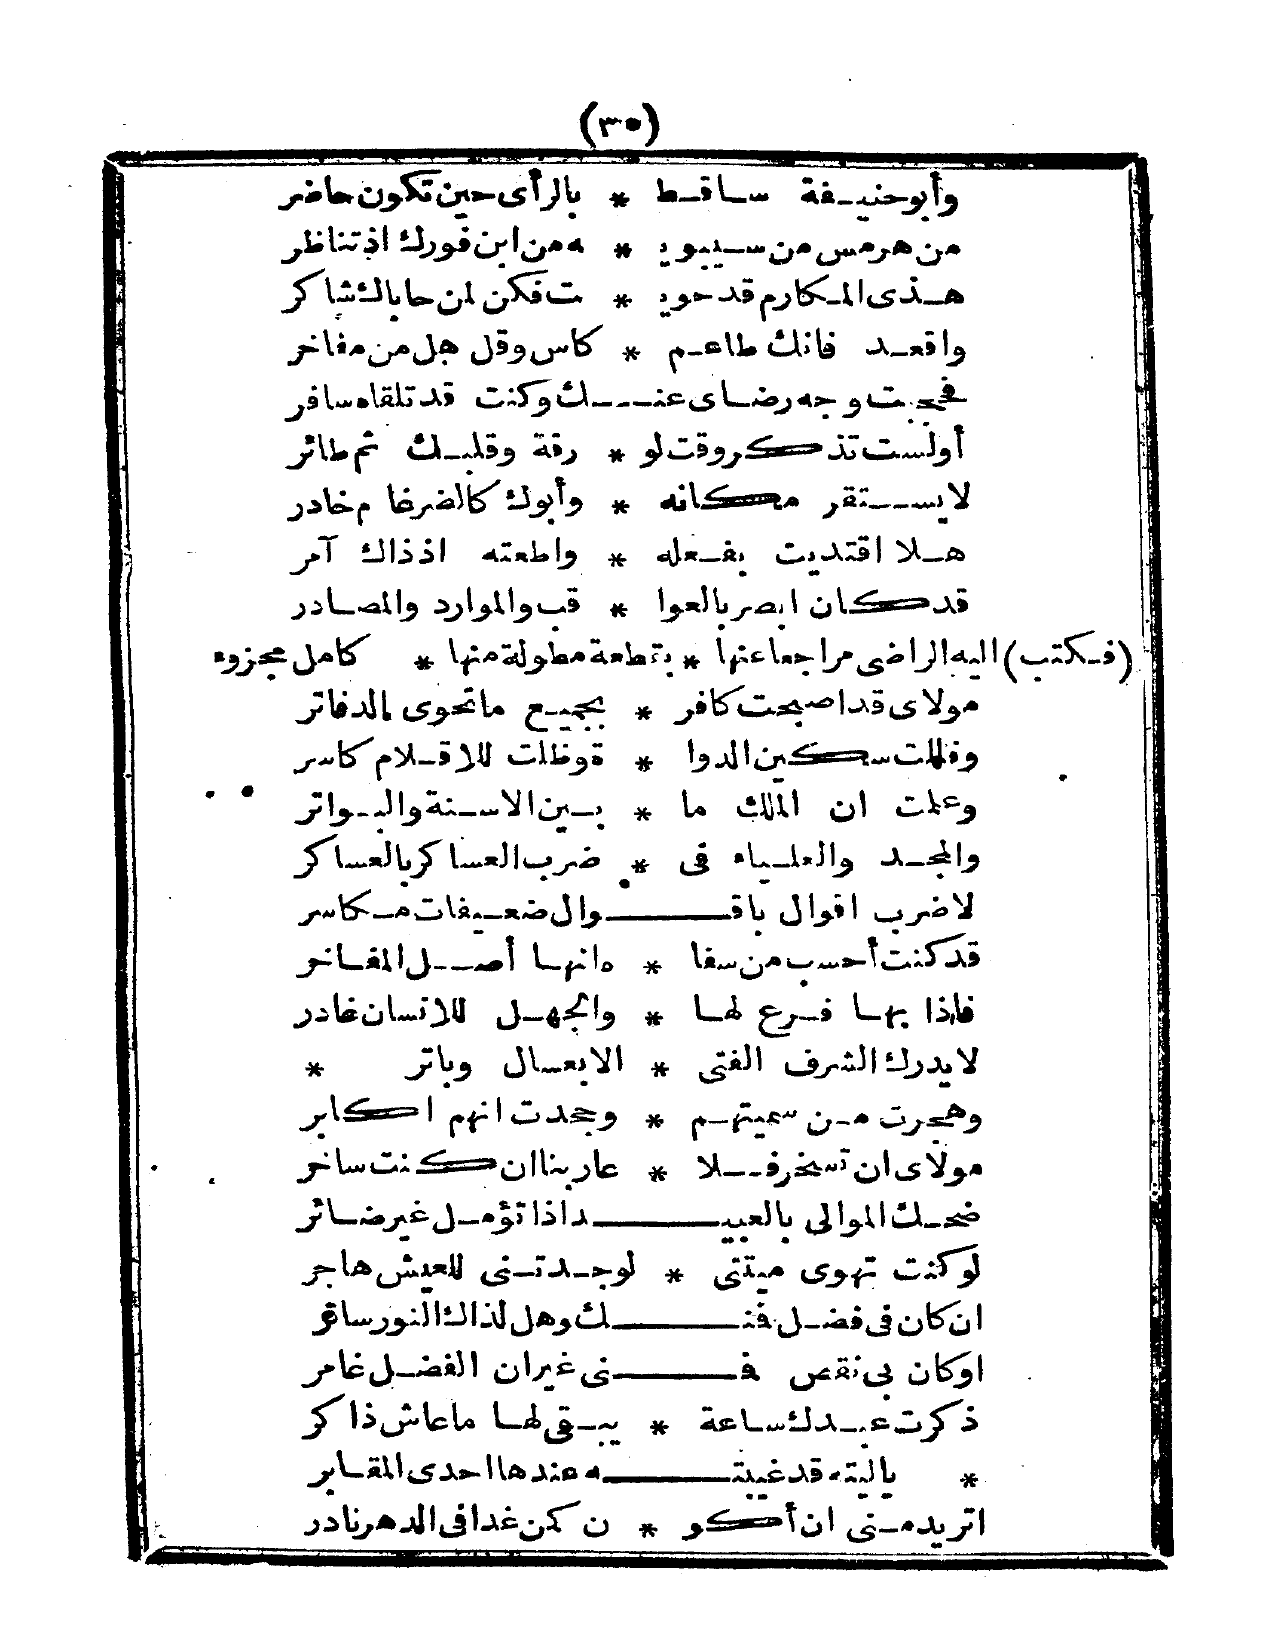 (٣٥)
وأبوحنيفة ساقط * بالرأى حين تكون حاضر
من هرمس من سيبوي * ه من ابن فورك اذ تناظر
هذى المكارم قد حوي * ت فكن لمن حاباك شاكر
واقعد فانك طاعم * كاس وقل هل من مفاخر
فحجبت وجه رضاى عنــك وكنت قد تلقاه سافر
أولست تذكر وقت لو * رقة وقلبك ثم طائر
لايستقر مكانه * وأبوك كالضرغام خادر
هلا اقتديت بفعله * واطعته اذذاك آمر
قد كان ابصر بالعوا * قب والموارد والمصادر
(فكتب) اليه الراضى مراجعا عنها * بقطعة مطولة منها * كامل مجزوء
مولاى قد اصبحت كافر * بجميع ما تحوى الدفاتر
وفللت سكين الدوا * ة وظلت للاقلام كاسر
وعلمت ان الملك ما * بين الاسنة والبواتر
والمجد والعلياء فى * ضرب العساكر بالعساكر
لاضرب اقوال باقــوال ضعيفات مكاسر
قد كنت أحسب من سفا * ه انها أصل المفاخر
فاذا بها فرع لها * والجهل للانسان غادر
لايدرك الشرف الفتى * الابعسال وباتر *
وهجرت من سميتهم * وجحدت انهم اكابر
مولاى ان تسخر فلا * عار بنا ان كنت ساخر
ضحك الموالى بالعبيــد اذا تؤمل غير ضائر
لوكنت تهوى ميتتى * لوجدتنى للعيش هاجر
ان كان فى فضل فنــك وهل لذاك النور ساتر
اوكان بى نقص فــنى غيران الفضل غامر
ذكرت عبدك ساعة * يبقى لها ماعاش ذاكر
* ياليته قد غيبتــه عندها احدى المقابر
اتريد منى ان أكو * ن كمن غدا فى الدهر نادر